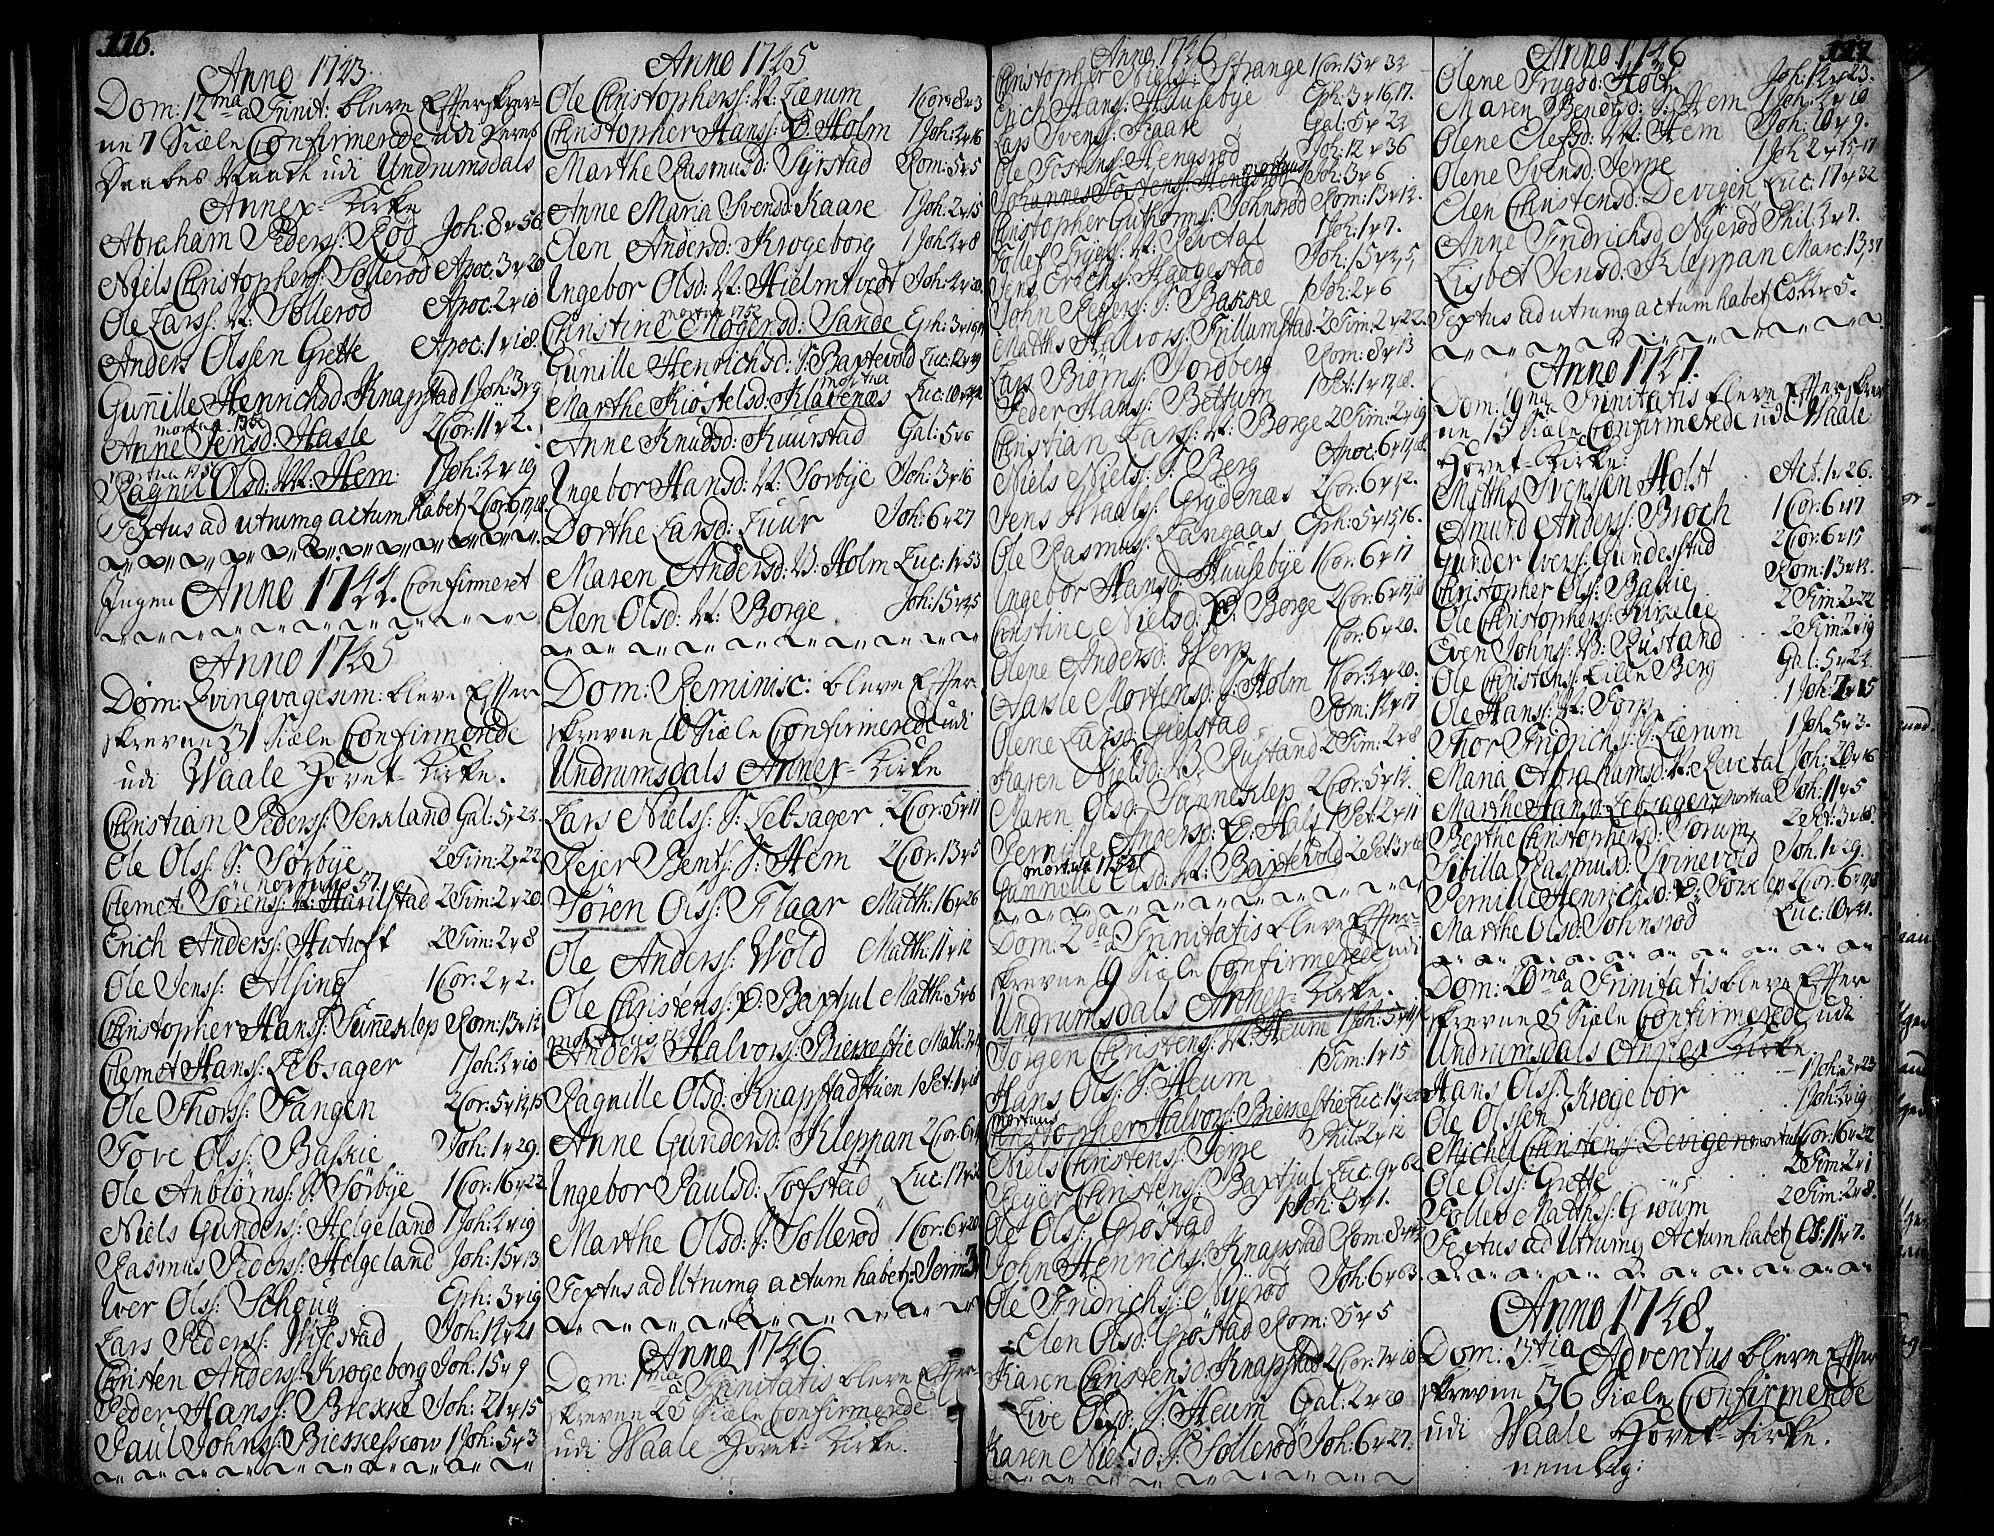 116.
Anno 1743.
Dom: 12ma a Trinit: bleve Efterskrev-
ne 7 Siæle Confirmerede udi
Undrumsdals
Annex-Kirke
Abraham Peders: Rød Joh: 8 v 56
Niels Christophers: Sollerød Apoc: 3 v 20
Ole Larss: N: Sollerød Apoc: 2 v 10
Anders Olssen Grette Apoc: 1 v 18
Guñille Henrichsd: Knapstad 1 Joh: 3 v 9
mortua
Anne Jensd: Hasle 2 Cor: 11 v 2.
mortua 1756
Ragnil Olsd: N: Hem: 1 Joh: 2 v 19
Textus ad utrumq actum habet 2 Cor: 6 v 18.
Ingen Anno 1744. Confirmeret
Anno 1745
Dom: Qvinqvagesim: bleve Efter-
skrevne 31 Siæle Confirmerede
udi Waale Hovet-Kirke.
Christian Peders: Serkland Gal: 5 v 24.
Ole Olss: S: Sørbÿe 2 Tim: 2 v 22
mortuus 57.
Clemet Sörens: N: Harilstad 2 Tim: 2 v 20.
Erich Anderss: Hutuft 2 Tim: 2 v 8
Ole Jenss: Alsing 1 Cor: 2 v 2.
Christopher Hans: Suñeklep Rom: 13 v 12
Clemet Hans: Lebsager 1 Joh: 2 v 10
Ole Thorss: Tangen 2 Cor: 5 v 14, 15
Tore Olss: Bakkie Joh: 1 v 29.
Ole Anbiørns: S: Sørbÿe 1 Cor: 16 v 22
Niels Gunders: Helgeland 1 Joh: 2 v 19
Rasmus Peders: Helgeland Joh: 15 v 13
Iver Olss: Schoug Eph: 3 v 19
Lars Peders: Wiestad Joh: 14 v 21
Christen Anders: Krogeborg Joh: 15 v 9
Peder Hanss: Brekke Joh: 21 v 15
Paul Johns: Bierkeskow 1 Joh: 5 v 3
Anno 1745
Ole Christophers: N: Lærum 1 Cor: 8 v 3
Christopher Hanss: Ø: Holm 1 Joh: 2 v 16
Marthe Rasmusd: Syrstad Rom: 5 v 5
Anne Maria Svensd: Kaare 1 Joh: 2 v 15
Elen Andersd: Krogeborg 1 Joh: 2 v 8
Ingebor Olsd: N: Hielmtvedt Joh: 2 v 20
mortua 1752
Christine Mogensd: Sande Eph: 3 v 16, 17
Guñille Henrichsd: S: Baxtevold Luc: 12 v 9
mortua
Marthe Kiøstelsd: Kladenæs Luc: 10 v 42
Anne Knudsd: Kuurstad Gal: 5 v 6
Ingebor Hansd: N: Sorbÿe Joh: 3 v 16
Dorthe Larsd: Luur Joh: 6 v 27
Maren Andersd: V: Holm Luc: 1 v 53
Elen Olsd: N: Borge Joh: 15 v 25
Dom: Reminisc: bleve Efter-
skrevne 10 Siæle Confirmerede udi
Undrumsdals Annex-Kirke
Lars Nielss: S: Lebsager 2 Cor: 5 v 11
Rejer Bents: S: Hem 2 Cor: 13 v 5
Sören Olss: Flaar Matth: 16 v 26
Ole Anderss: Wold Matth: 11 v 12
Ole Christens: Ø: Baxtjul Matth: 5 v 6
mortuus
Anders Halvors: Bierkeflie Matth:
Ragnille Olsd: Knapstadstuen 1 Pet: 1 v
Anne Gundersd: Kleppan 2 Cor: 6 v
Ingebor Paulsd: Lofstad Luc: 17 v 32
Marthe Olsd: S: Sollerød 1 Cor: 6 v 20
Textus ad Utrumq actum habetz: Jerim: 3
Anno 1746
Dom: 1ma a Trinitatis bleve Efter-
skrevne 25 Siæle Confirmerede
udi Waale Hovet-Kirke.
Anno 1746
Christopher Niels: Strange 1 Cor: 15 v 33
Erich Hans: Huusebÿe Eph: 3 v 16, 17.
Lars Svens: Kaare Gal: 5 v 24
Ole Tostens: Hengsrød Joh: 12 v 36
mortuus
Johannes Tostens: Hengsrød Joh: 3 v 6
Christopher Guthorms: Johnsrød Rom: 13 v 12.
Tollef Trÿes: N: Revetal 1 Joh: 1 v 7.
Jens Erichs: Haagestad Joh: 15 v 4, 5,
John Rejers: S: Bakke 1 Joh: 2 v 6
Matths Halvors: Trillumstad 2 Tim: 2 v 22.
Lars Biørns: Jordberg Rom: 8 v 13
Peder Hans: Bettum 1 Pet: 1 v 17, 18.
Christian Lars: N: Borge 2 Tim: 2 v 19
Niels Niels: S: Berg Apoc: 6 v 17, 18.
Jens Iwaals: Grÿdenæs 2 Cor: 6 v 2.
Ole Rasmus: Langaas Eph: 5 v 15, 16.
Ingebor Hansd: Huusebÿe 1 Cor: 6 v 17
Christine Nielsd: Ø: Borge 2 Cor: 6 v 17, 18
Olene Andersd: Werp 1 Cor: 6 v 20.
Aasle Mortensd: S: Holm 1 Cor: 2 v 20.
Olene Larsd: Gielstad Rom: 12 v 17
Karen Nielsd: N: Rustand 2 Tim: 2 v 8
Maren Olsd: Sunneklep 2 Cor: 5 v 14.
Pernille Andersd: Ø: Hals 1 Pet: 2 v 11
mortua 1754
Gunnille Olsd: N: Baxtevold 2 Pet: 3 v 18
Dom: 2da a Trinitatis bleve Efter-
skrevne 19 Siæle Confirmerede udi
Undrumsdals Annex-Kirke.
Jörgen Christens: N: Heum 1 Joh: 5 v 4
Hans Olss: S: Heum 1 Tim: 1 v 15
mortuus
Christopher Halvors: Bierkeflie Luc: 15 v
Niels Christens: Jerpe Phil: 2 v 12
Rejer Christens: Baxtjul Luc: 9 v 62
Ole Ols: Grøstad 1 Joh: 3 v 1.
John Henrichs: Knapstad Rom: 8 v
Ole Fridrichs: Nÿerød Joh: 6 v 63.
Elen Olsd: Grøstad Rom: 5 v 5
Karen Christensd: Knapstad 2 Cor: 7 v 10
Live Olsd: S: Heum Gal: 2 v 20
Karen Nielsd: S: Sollerød Joh: 6 v 27.
117
Anno 1746
Olene Trygsd: Holt Joh: 12 v 23.
Maren Bendtsd: S: Hem 1 Joh: 2 v 10
Olene Olefsd: N: Hem Joh: 10 v 9.
Olene Svensd: Jerpe 1 Joh 2 v 15, 17
Elen Christensd: Devigen Luc: 17 v 32
Anne Fridrichsd Nÿerød Phil: 2 v 7.
Lisbet Jensd: Kleppan Marc: 13, 37
Textus ad utrumq actum habet Es: 2 v 5.
Anno 1747.
Dom: 19na a Trinitatis bleve Efterskrev
ne 15 Siæle Confirmerede udi Waale
Hovet-Kirke:
Matths Svenssen Holst Act: 1 v 26.
Amurd Anderss: Broch 1 Cor: 6 v 17
Gunder Iverss: Gundestad 2 Cor: 6 v 15
Christopher Olss: Bakkie Rom: 13 v 12.
Ole Christophers: Kirkelie 2 Tim: 2 v 22
Even Johnss: N: Rustand 2 Tim: 2 v 19
Ole Christens: Lille Berg Gal: 5 v 24
Ole Hans: N: Torp 1 Joh: 2 v 15
Thor Fridrichs: S: Lærum 1 Joh: 5 v 3.
Maria Abrahamsd: N: Revetal Joh: 20 v 16
Marthe Hansd: Lebsager mortua Joh: 11 v 5
Berthe Christophersd: Sorum 2 Pet: 3 v 18.
Sibilla Rasmusd: Svinevold Joh: 1 v 29.
Pernille Henrichsd: Ø: Torklep 2 Cor: 6 v 18
Marthe Olsd: Johnsrød Luc: 10 v 41.
Dom: 20ma a Trinitatis bleve Efter
skrevne 5 Siæle Confirmerede udi
Undrumsdals Annex Kirke
Hans Olss: 1 Joh: 3 v 23
Ole Olssen Krogebor 1 Joh: 2 v 19
Michel Christens: Devigen mortuus 1 Cor: 16 v 22
Ole Olss: Grette 2 Tim: 2 v 1
Tollev Matths: Grøum 2 Tim: 2 v 8.
Textus ad Utrumq Actum habetz Es: 11 v 7.
Anno 1748.
Dom: 3tia Adventus bleve Efter
skrevne 36 Siæle Confirmerede
udi Waale Hovet-Kirke.
nemlig: